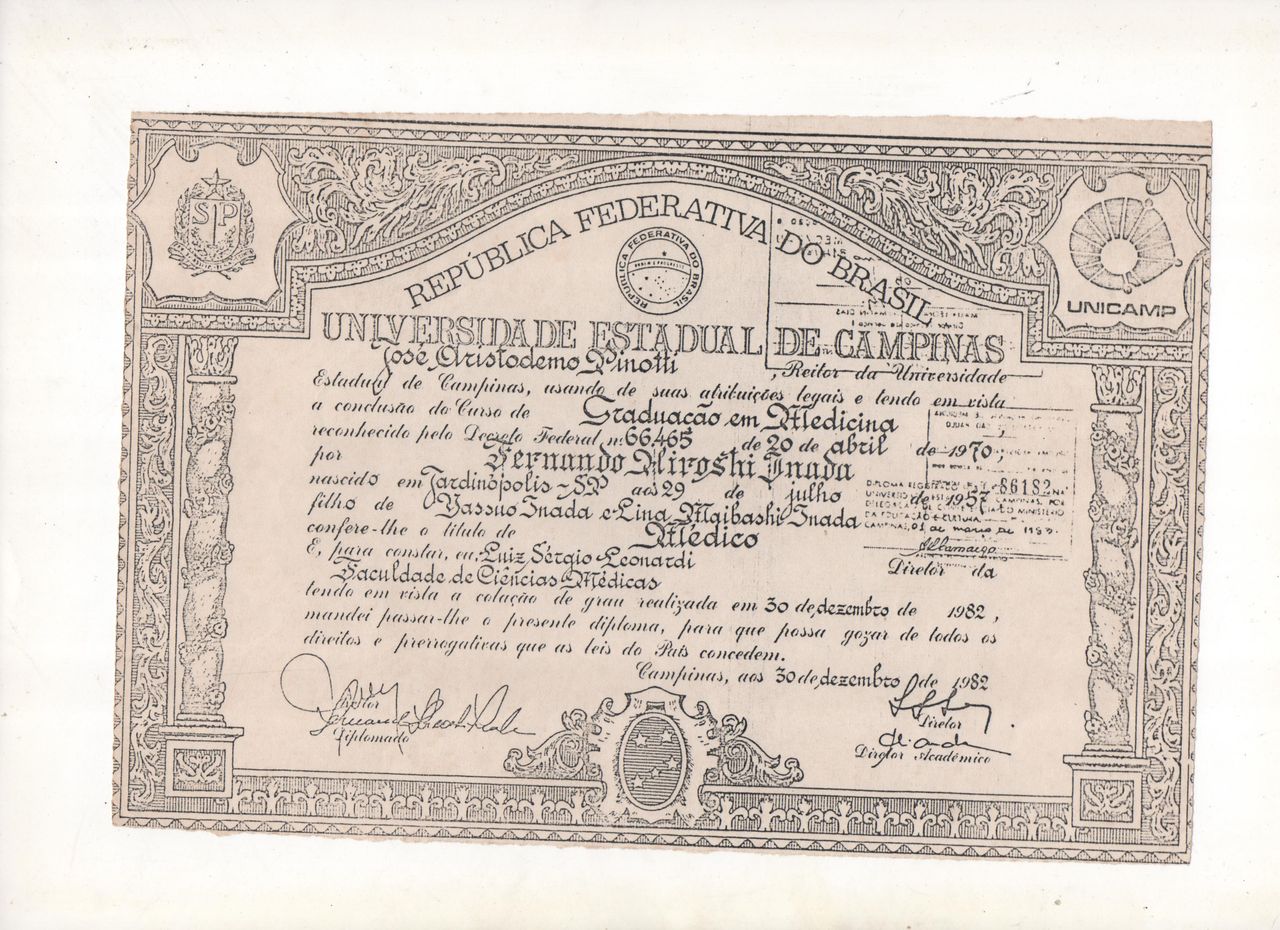 SP
REPÚBLICA FEDERATIVA DO BRASIL
REPÚBLICA FEDERATIVA DO BRASIL
UNICAMP
UNIVERSIDADE ESTADUAL DE CAMPINAS
José Aristodemo Pinotti , Reitor da Universidade
Estadual de Campinas, usando de suas atribuições legais e tendo em vista
a conclusão do Curso de Graduação em Medicina ,
reconhecido pelo Decreto Federal nº 66.465 de 20 de abril de 1970,
por Fernando Hiroshi Inada
nascido em Jardinópolis-SP aos 29 de julho de 1957
filho de Yassuo Inada e Lina Maibashi Inada
confere-lhe o título de Médico
E, para constar, eu, Luiz Sérgio Leonardi Diretor da
Faculdade de Ciências Médicas
tendo em vista a colação de grau realizada em 30 de dezembro de 1982,
mandei passar-lhe o presente diploma, para que possa gozar de todos os
direitos e prerrogativas que as leis do País concedem.
Campinas, aos 30 de dezembro de 1982
Reitor
Diplomado
Diretor
Diretor Acadêmico
DIPLOMA 86182 NA
CAMPINAS, POR
MINISTÉRIO
DA EDUCAÇÃO E CULTURA
CAMPINAS, 01 de março de